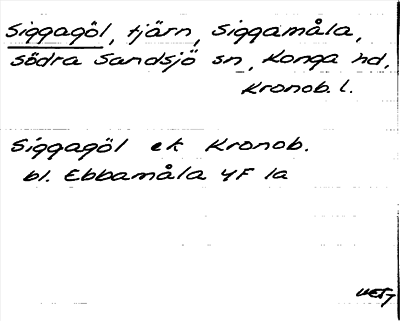 Siggagöl, tjärn, Siggamåla,
Södra Sandsjö sn, Konga hd,
Kronob. l.
Siggagöl ek Kronob.
bl. Ebbamåla 4F 1a